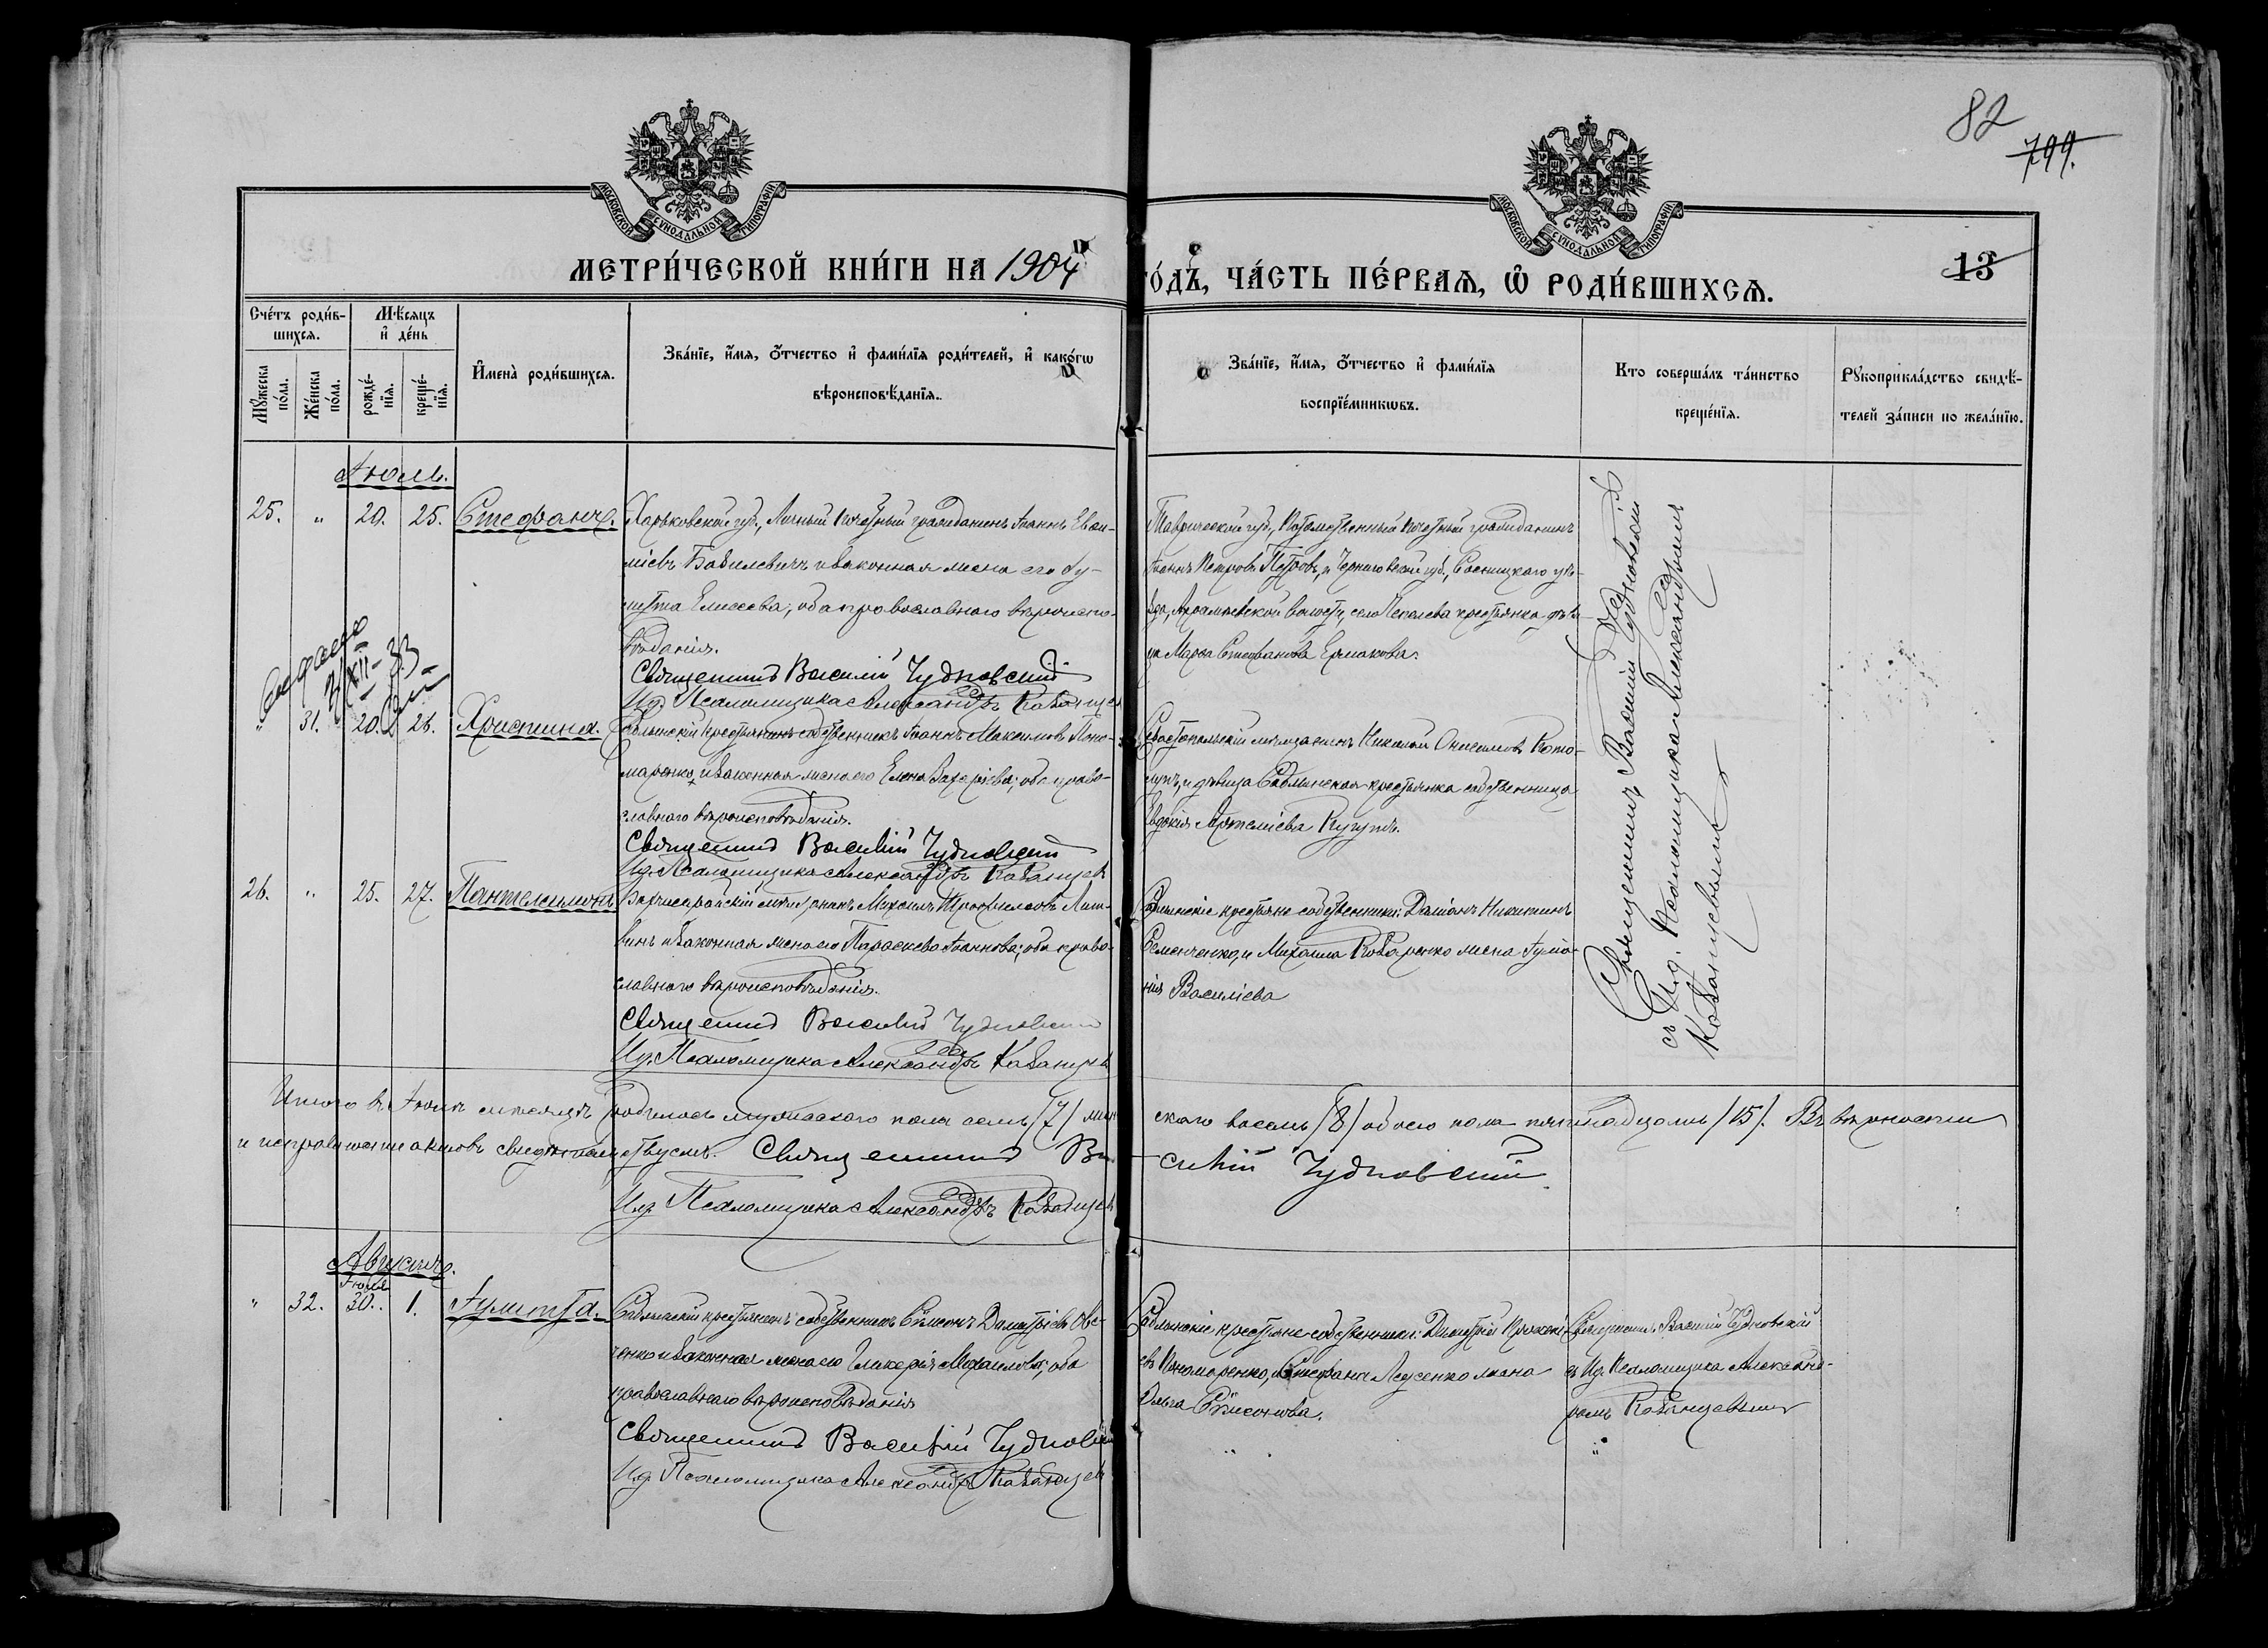 82
799.
МОСКОВСКОЙ СѴНОДАЛЬНОЙ ТИПОГРАФІИ
МОСКОВСКОЙ СѴНОДАЛЬНОЙ ТИПОГРАФІИ
МЕТРИ́ЧЕСКОЙ КНИ́ГИ НА 1904 ГО́ДЪ, ЧА́СТЬ ПЕ́РВАѦ, Ѡ҆ РОДИ́ВШИХСѦ.
13
Сче́тъ роди́в-
шихсѧ.
Мѣ́сѧцъ
и҆ де́нь
Мꙋ́жеска по́ла.
Же́нска по́ла.
рожде́-нїѧ.
креще́-нїѧ.
И҆мена̀ роди́вшихсѧ.
Зва́нїе, и҆́мѧ, ѻ҆́тчество и҆ фами́лїѧ роди́телей, и҆ како́гѡ
вѣроисповѣ́данїѧ.
Зва́нїе, и҆́мѧ, ѻ҆́тчество и҆ фами́лїѧ
воспрїе́мникѡвъ.
Кто соверша́лъ та́инство
креще́нїѧ.
Рꙋкоприкла́дство свидѣ́-
телей за́писи по жела́нїю.
Іюль.
25. " 20. 25. Стефанъ.
Харьковской губ., Личный Почетный гражданинъ Іоаннъ Евѳи-
міевъ Бабилевичъ и законная жена его Іу-
литта Елисеева, оба православнаго вѣроиспо-
вѣданія.
Священникъ Василій Чудновскій
И.д. Псаломщика Александръ Казанцев
Таврической губ., Потомственный Почетный гражданинъ
Іоаннъ Петровъ Петровъ, и Черниговской губ., Сосницкаго уѣ-
зда, волости, села крестьянка дѣви-
ца Марѳа Стефанова Ермакова.
Священникъ Василій Чудновскій
съ И.д. Псаломщика Александромъ
Казанцевымъ
XII - 33
" 31. 20. 26. Христина.
Саблынскій крестьянинъ собственникъ Іоаннъ Максимовъ Поно-
маренко, и законная жена его Елена Захаріева; оба право-
славнаго вѣроисповѣданія.
Священникъ Василій Чудновскій
И.д. Псаломщика Александръ Казанцев
Севастопольскій мѣщанинъ Николай Онисимовъ
и дѣвица Саблынская крестьянка собственница
Евдокія
26. " 25. 27. Пантелеимонъ
Бахчисарайскій мѣщанинъ Михаилъ Трофимовъ Лит-
винъ и законная жена его Параскева Іоаннова; оба право-
славнаго вѣроисповѣданія.
Священникъ Василій Чудновскій
И.д. Псаломщика Александръ Казанцев
Саблынскіе крестьяне собственники: Даміанъ Никитинъ
Семенченко, и Михаила жена Іулiа-
нія Василіева
Итого въ Іюлѣ мѣсяцѣ родилось мужескаго пола семь /7/ жен-
скаго восемь /8/ обоего пола пятнадцать /15/. Въ вѣрности
и исправности актовъ свидѣтельствуемъ. Священникъ Ва-
силій Чудновскій.
И.д. Псаломщика Александръ Казанцев
Августъ.
Іюля
" 32. 30. 1. Іулитта.
Саблынскій крестьянинъ собственникъ Симеонъ Димитріевъ Овс-
ченко и законная жена его Гликерія Михаилова; оба
православнаго вѣроисповѣданія
Священникъ Василій Чудновскій
И.д. Псаломщика Александръ Казанцев
Саблынскіе крестьяне собственники: Димитрій
Пономаренко, и Стефана жена
Ольга Симеонова.
Священникъ Василій Чудновскій
съ И.д. Псаломщика Александ-
ромъ Казанцевымъ